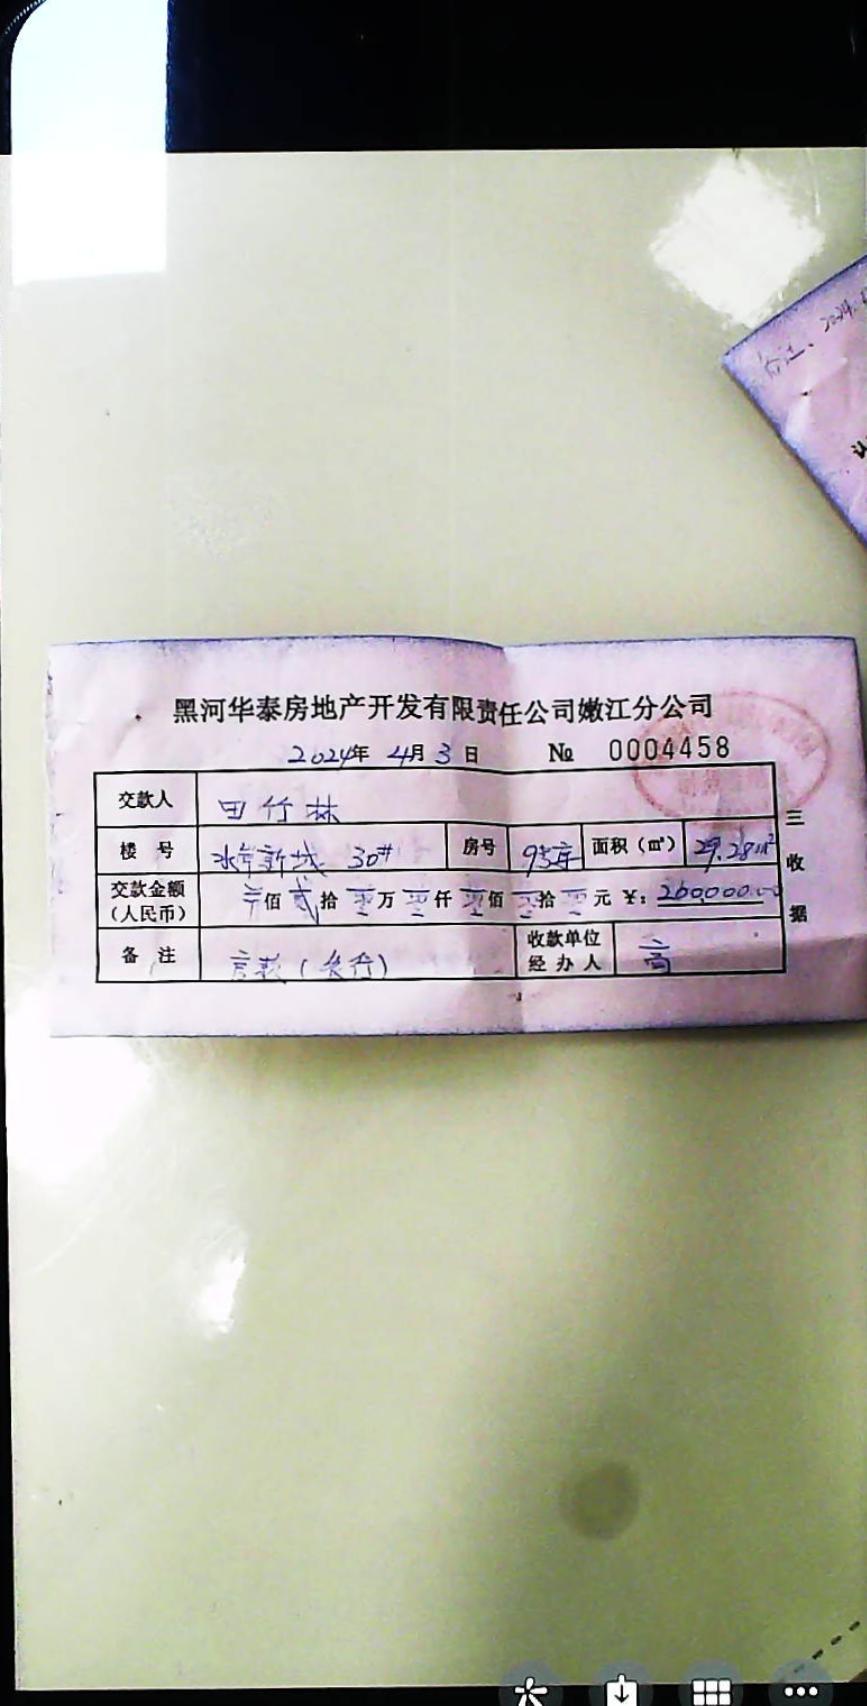 黑河华泰房地产开发有限责任公司嫩江分公司
2024年 4月 3日 № 0004458
交款人 田竹林
楼号 水岸新城 30# 房号 95库 面积（㎡） 29.28m²
交款金额（人民币） 佰贰拾零万零仟零佰零拾零元 ¥：260000.00
备注 收款单位经办人 高
三
收
据